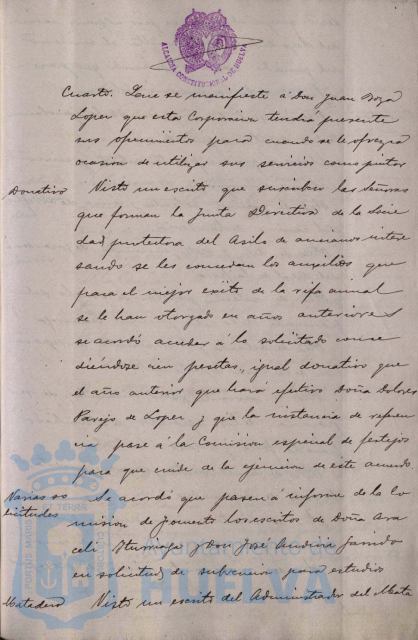 ALCALDIA CONSTITUCIONAL DE HUELVA
Cuarto. Que se manifieste á Don Juan
Lopez que esta Corporacion tendrá presente
sus ofrecimientos para cuando se le ofrezca
ocasion de utilizar sus servicios como pintor
Donativo Visto un escrito que suscriben las Señoras
que forman la Junta Directiva de la Socie
dad protectora del Asilo de ancianos intere
sando se les concedan los auxilios que
para el mejor exito de la rifa anual
se le han otorgado en años anteriores
se acordó acceder á lo solicitado conce
diéndose cien pesetas, igual donativo que
el año anterior que hará efectivo Doña Dolores
Parejo de Lopez y que la instancia de referen
cia pase á la Comision especial de festejos
para que cuide de la ejecucion de este acuerdo.
Varias so
licitudes Se acordó que pasen á informe de la Co
mision de fomento los escritos de Doña Ara
celi Iturriaga y Don José Garrido
en solicitud de subvencion para estudios
Matadero Visto un escrito del Administrador del Mata
HUELVA